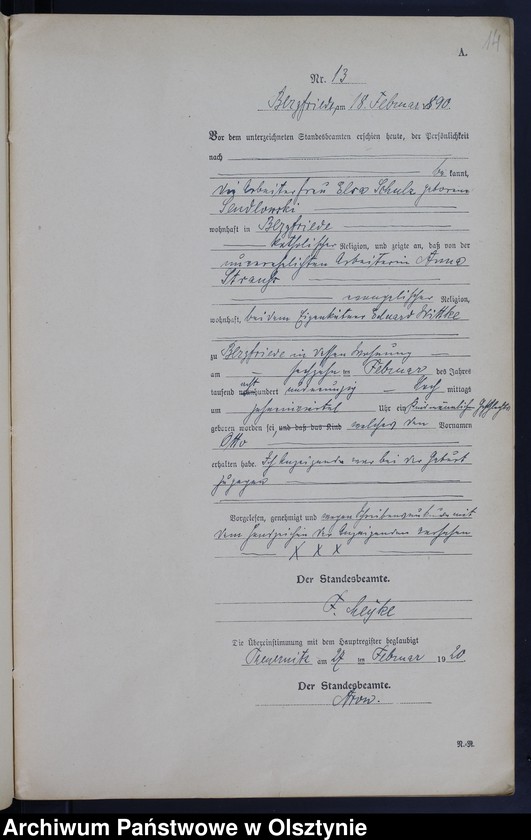 14
A.
Nr. 13
Bergfriede, am 18. Februar 1890.
Vor dem unterzeichneten Standesbeamten erschien heute, der Persönlichkeit
nach
be kannt,
die Arbeiterfrau Elva Schulz geborene
Sendlowski
wohnhaft in Bergfriede
katholischer Religion, und zeigte an, daß von der
unverehelichten Arbeiterin Anna
Strauß
evangelischer Religion,
wohnhaft bei dem Eigenkätner Eduard Wittke
zu Bergfriede in dessen Wohnung
am sechzehn ten Februar des Jahres
tausend acht hundert und neunzig Nach mittags
um Uhr ein Kind männlichen Geschlechts
geboren worden sei, und daß das Kind welches den Vornamen
Otto
erhalten habe. Anzeigende war bei der Geburt
zugegen
Vorgelesen, genehmigt und wegen Schreibensunkunde mit
dem Handzeichen der Anzeigenden versehen
X X X
Der Standesbeamte.
F.
Die Übereinstimmung mit dem Hauptregister beglaubigt
am 27 ten Februar 1920
Der Standesbeamte.
N.-R.
Archiwum Państwowe w Olsztynie